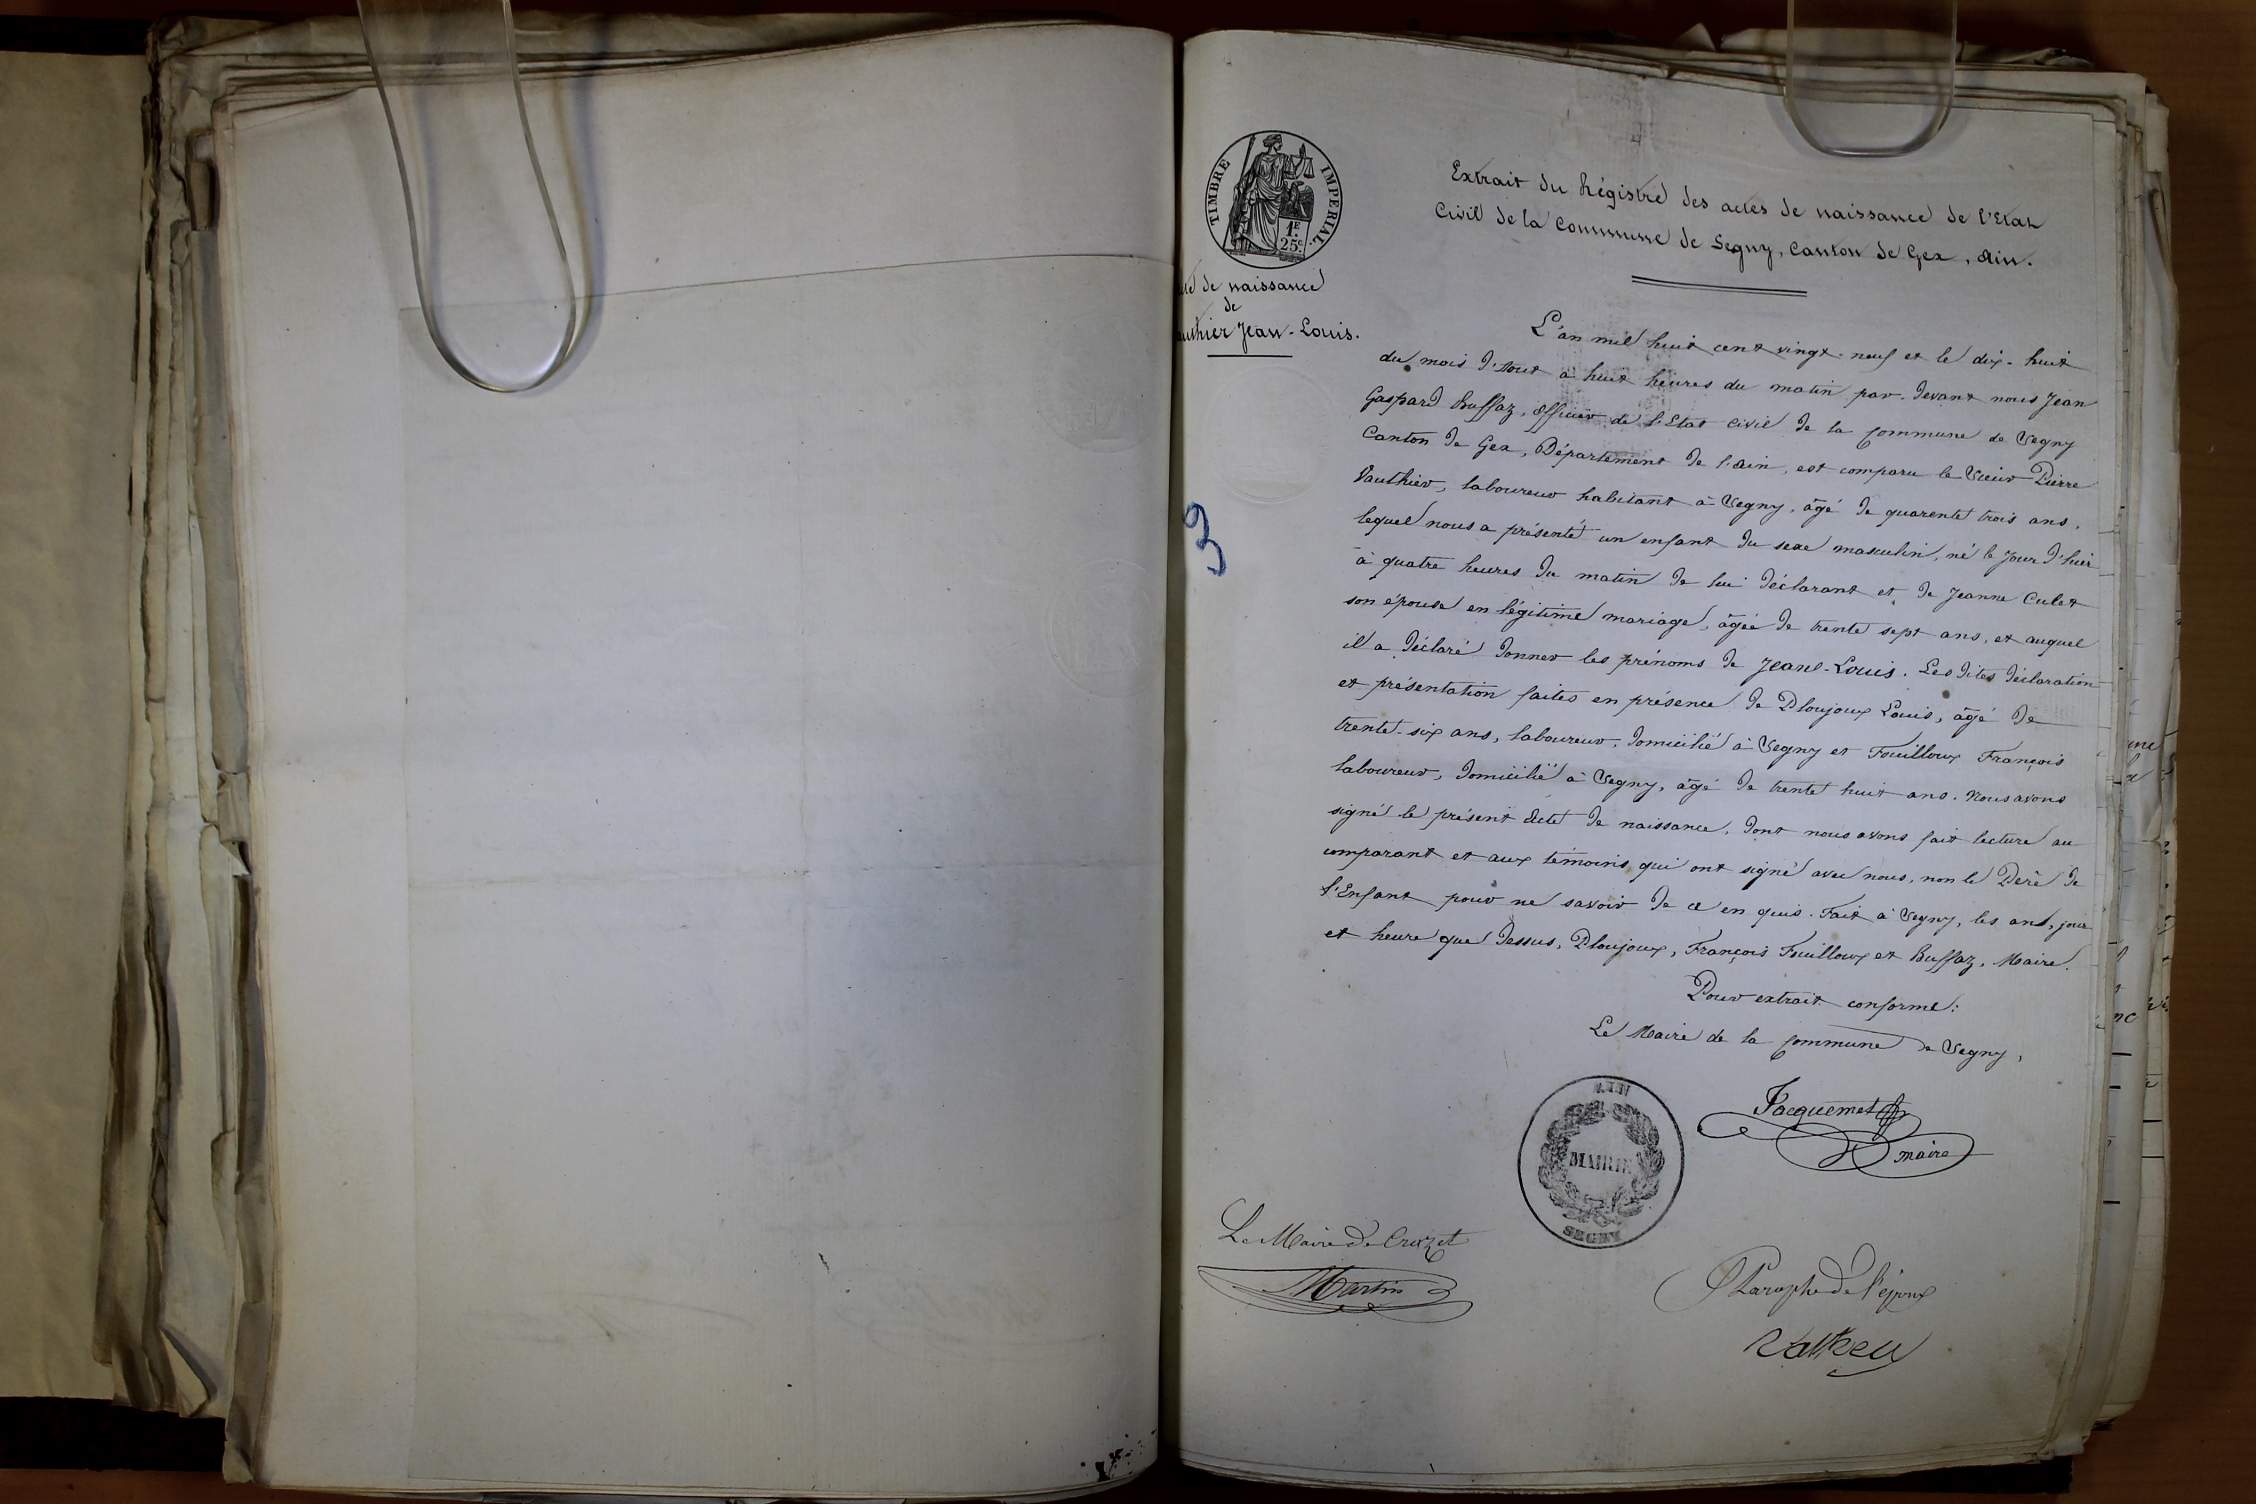 TIMBRE IMPERIAL.
1F.
25c.
Extrait du Régistre des actes de naissance de l'Etat
Civil de la Commune de Segny, Canton de Gex, Ain.
de naissance
de
authier Jean-Louis.
3
L'an mil huit cent vingt-neuf et le dix-huit
du mois d'Aout à huit heures du matin par-devant nous Jean
Gaspard Buffaz, officier de l'Etat civil de la Commune de Segny
Canton de Gex, Département de l'Ain, est comparu le Sieur Pierre
Vauthier, laboureur habitant à Segny, âgé de quarente trois ans,
lequel nous a présenté un enfant du sexe masculin, né le jour d'hier
à quatre heures du matin de lui déclarant et de Jeanne Culet
son épouse en légitime mariage, âgée de trente sept ans, et auquel
il a déclaré donner les prénoms de Jean-Louis. Les dites déclaration
et présentation faites en présence de Ploujoux Louis, âgé de
trente-six ans, laboureur, domicilié à Segny et Fouilloux François
laboureur, domicilié à Segny, âgé de trente huit ans. Nous avons
signé le présent Acte de naissance, dont nous avons fait lecture au
comparant et aux témoins qui ont signé avec nous, non le Père de
l'Enfant pour ne savoir de ce en quis. Fait à Segny, les ans, jour
et heure que dessus, Ploujoux, François Fouilloux et Buffaz, Maire.
Pour extrait conforme:
Le Maire de la Commune de Segny,
Jacquemet
maire
AIN
MAIRIE
SEGNY
Le Maire de Crozet
Martin
Paraphe de l'époux